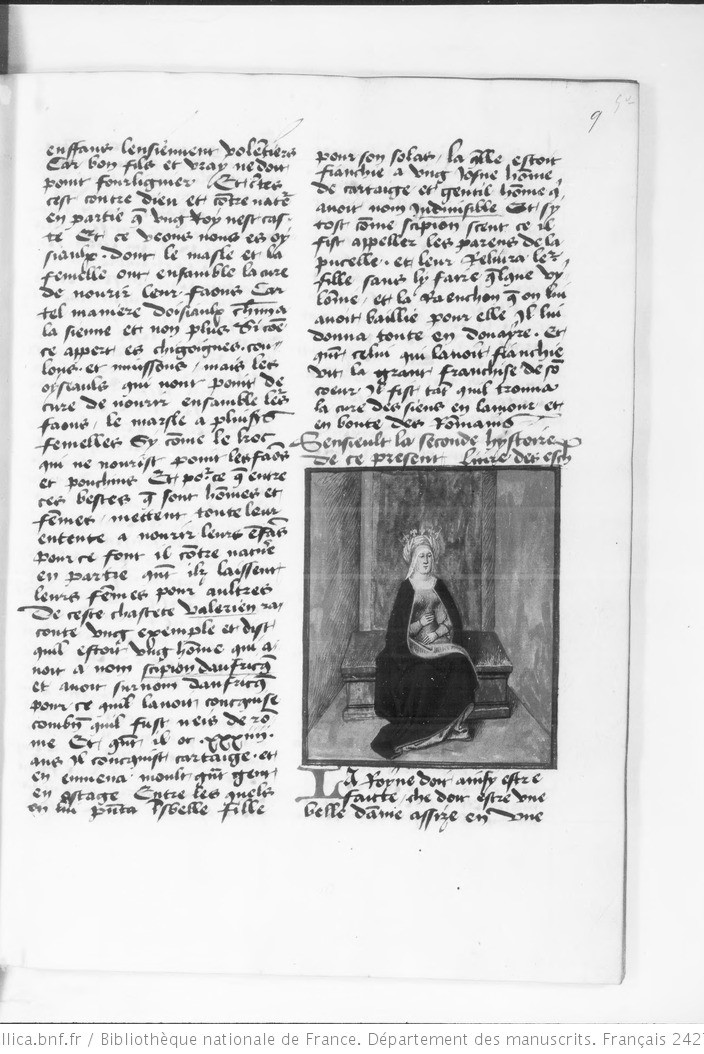 9
enffans lensieuuent volentiers
Car bon fils et vray ne doit
point fourlignier Et certes
cest contre dieu et contre natẽ
en partie q̃ vng Roy nest cas
te Et ce veons nous es oy
siaulx. dont le masle et la
femelle ont ensamble la cure
de nourir leur faons Car
tel maniere doisiaulx
la sienne et non plus Si cõe
ce appert es chigoignes. cou
lons. et muissons. mais les
oyseaulx qui nont point de
cure de nourir ensamble les
faons. le masle a pluiss̃
femelles Sy cõme le koc
qui ne nourist point les faõs
et pouchins Et por ce q̃ entre
ces bestes q̃ sont hõmes et
fẽmes. mettent toute leur
entente a nourir leurs efãs
pour ce font il cõtre nature
en partie qũt ilz laissent
leurs fẽmes pour aultres
De ceste chastete Valerien ra
conte vng exemple et dist
quil estoit vng hõme qui a
uoit a nom scipion dauffricq̃
et auoit surnom dauffricq̃
pour ce quil lauoit concquise
combñ quil fust neis de rõ
me Et qñt il ot .xxxiiii.
ans Il concquist cartaige. et
en enmena moult grñt gent
en ostage Entre les quels
on lui pñta Isbelle fille
pour son solas. la q̃lle estoit
fianchie a vng Josne hõme
de cartaige et gentil hõme q̃
auoit nom Indiuisille Et sy
tost cõme scipion sceut ce il
fist appeller les parens de la
pucelle. et leur Reliura leᷣ
fille sans ly faire q̃lque vy
lonie. et la Raenchon q̃ on lui
auoit baillie pour elle Il lui
donna toute en douayre. Et
qũt celui qui lauoit fianchie
vit la grant franchise de sõ
coeur Il fist tãt quil trouua
la cure des siens en lamour et
en bonte des Rommains
Sensieult la seconde hystoire
De ce present Liure des esch
LA Royne doit ainsy estre
faitte. elle doit estre vne
belle dame assize en vne
llica.bnf.fr / Bibliothèque nationale de France. Département des manuscrits. Français 242